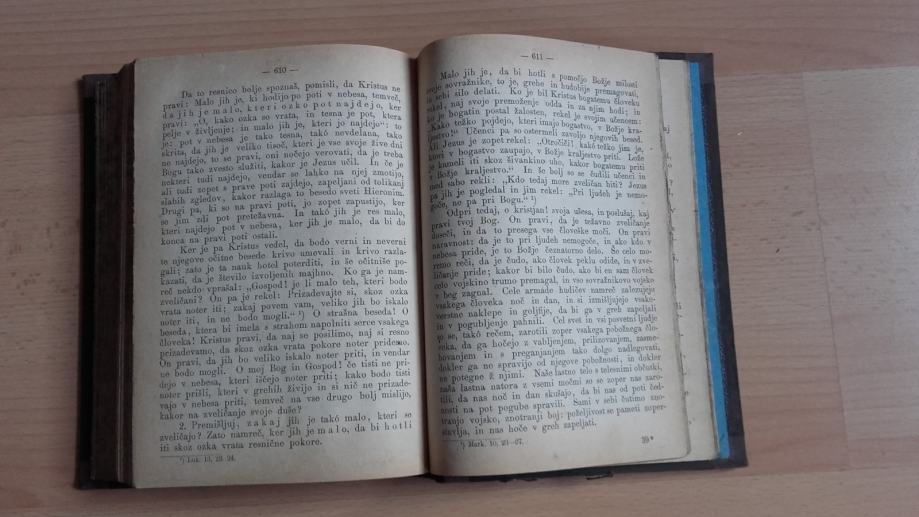 — 610 —
Da to resnico bolje spoznaš, pomisli, da Kristus ne
pravi: Malo jih je, ki hodijo po poti v nebesa, temveč,
da jih je malo, kteri ozko pot najdejo, ker
pravi: „O, kako ozka so vrata, in tesna je pot, ktera
pelje v življenje: in malo jih je, kteri jo najdejo“: to
je: pot v nebesa je tako tesna, takó nevdelana, tako
skrita, da jih je veliko tisoč, kteri je vse svoje žive dni
ne najdejo, to se pravi, oni nočejo verovati, da je treba
Bogu tako zvesto služiti, kakor je Jezus učil. In če je
nekteri tudi najdejo, vendar se lahko na njej zmotijo,
ali tudi zopet s prave poti zajdejo, zapeljani od tolikanj
slabih zgledov, kakor razlaga to besedo sveti Hieronim.
Drugi pa, ki so na pravi poti, jo zopet zapustijo, ker
se jim zdi pot pretežavna. In takó jih je res malo,
kteri najdejo pot v nebesa, ker jih je malo, da bi do
konca na pravi poti ostali.
Ker je pa Kristus vedel, da bodo verni in neverni
te njegove očitne besede krivo umevali in krivo razla-
gali; zato je ta nauk hotel poterditi, in še očitniše po-
kazati, da je število izvoljenih majhno. Ko ga je nam-
reč nekdo vprašal: „Gospod! je li malo teh, kteri bodo
zveličani? On pa je rekel: Prizadevajte si, skoz ozka
vrata noter iti; zakaj povem vam, veliko jih bo iskalo
noter iti, in ne bodo mogli.“ ¹) O strašna beseda! O
beseda, ktera bi imela s strahom napolniti serce vsakega
človeka! Kristus pravi, da naj se posilimo, naj si resno
prizadevamo, da skoz ozka vrata pokore noter pridemo.
On pravi, da jih bo veliko iskalo noter priti, in vendar
ne bodo mogli. O moj Bog in Gospod! če tisti ne pri-
dejo v nebesa, kteri iščejo noter priti; kako bodo tisti
noter prišli, kteri v grehih živijo in si nič ne prizade-
vajo v nebesa priti, temveč na vse drugo bolj mislijo,
kakor na zveličanje svoje duše?
2. Premišljuj, zakaj jih je takó malo, kteri se
zveličajo? Zato namreč, ker jih je malo, da bi hotli
iti skoz ozka vrata resnične pokore.
¹) Luk. 13, 23. 24.
— 611 —
Malo jih je, da bi hotli s pomočjo Božje milosti
svoje sovražnike, to je, grehe in hudobije premagovati,
in sebi silo delati. Ko je bil Kristus bogatemu človeku
rekel, naj svoje premoženje odda in za njim hodi; in
ko je bogatin postal žalosten, rekel je svojim učencem:
„Kako težko pojdejo, kteri imajo bogastvo, v Božje kra-
ljestvo!“ Učenci pa so ostermeli zavoljo njegovih besed.
Ali Jezus je zopet rekel: „Otročiči! kakó težko jim je,
kteri v bogastvo zaupajo, v Božje kraljestvo priti. Lože
je kameli iti skoz šivankino uho, kakor bogatemu priti
v Božje kraljestvo.“ In še bolj so se čudili učenci in
med sabo rekli: „Kdo tedaj more zveličan biti? Jezus
pa jih je pogledal in jim rekel: „Pri ljudeh je nemo-
goče, ne pa pri Bogu.“ ¹)
Odpri tedaj, o kristjan! svoja ušesa, in poslušaj, kaj
pravi tvoj Bog. On pravi, da je težavno zveličanje
doseči, in da to presega vse človeške moči. On pravi
naravnost: da je to pri ljudeh nemogoče, in ako kdo v
nebesa pride, je to Božje čeznatorno delo. Še celo mo-
remo reči, da je čudo, ako človek peklu odide, in v zve-
ličanje pride; kakor bi bilo čudo, ako bi en sam človek
celo vojskino trumo premagal, in vso sovražnikovo vojsko
v beg zagnal. Cele armade hudičev namreč zalezujejo
vsakega človeka noč in dan, in si izmišljujejo vsake-
verstne naklepe in goljfije, da bi ga v greh zapeljali
in v pogubljenje pahnili. Cel svet in vsi posvetni ljudje
so se, takó rečem, zarotili zoper vsakega pobožnega člo-
veka, da ga hočejo z vabljenjem, prilizovanjem, zasme-
hovanjem in s preganjanjem tako dolgo nadlegovati,
dokler ga ne spravijo od njegove pobožnosti, in dokler
ne potegne ž njimi. Naše lastno telo s telesnimi občutki,
naša lastna natora z vsemi močmi so se zoper nas zaro-
tili, da nas noč in dan skušajo, da bi nas od poti čed-
nosti na pot pogube spravili. Sami v sebi čutimo zno-
tranjo vojsko, znotranji boj: poželjivost se pameti zoper-
stavlja, in nas hoče v greh zapeljati.
¹) Mark. 10, 23—27.
39*